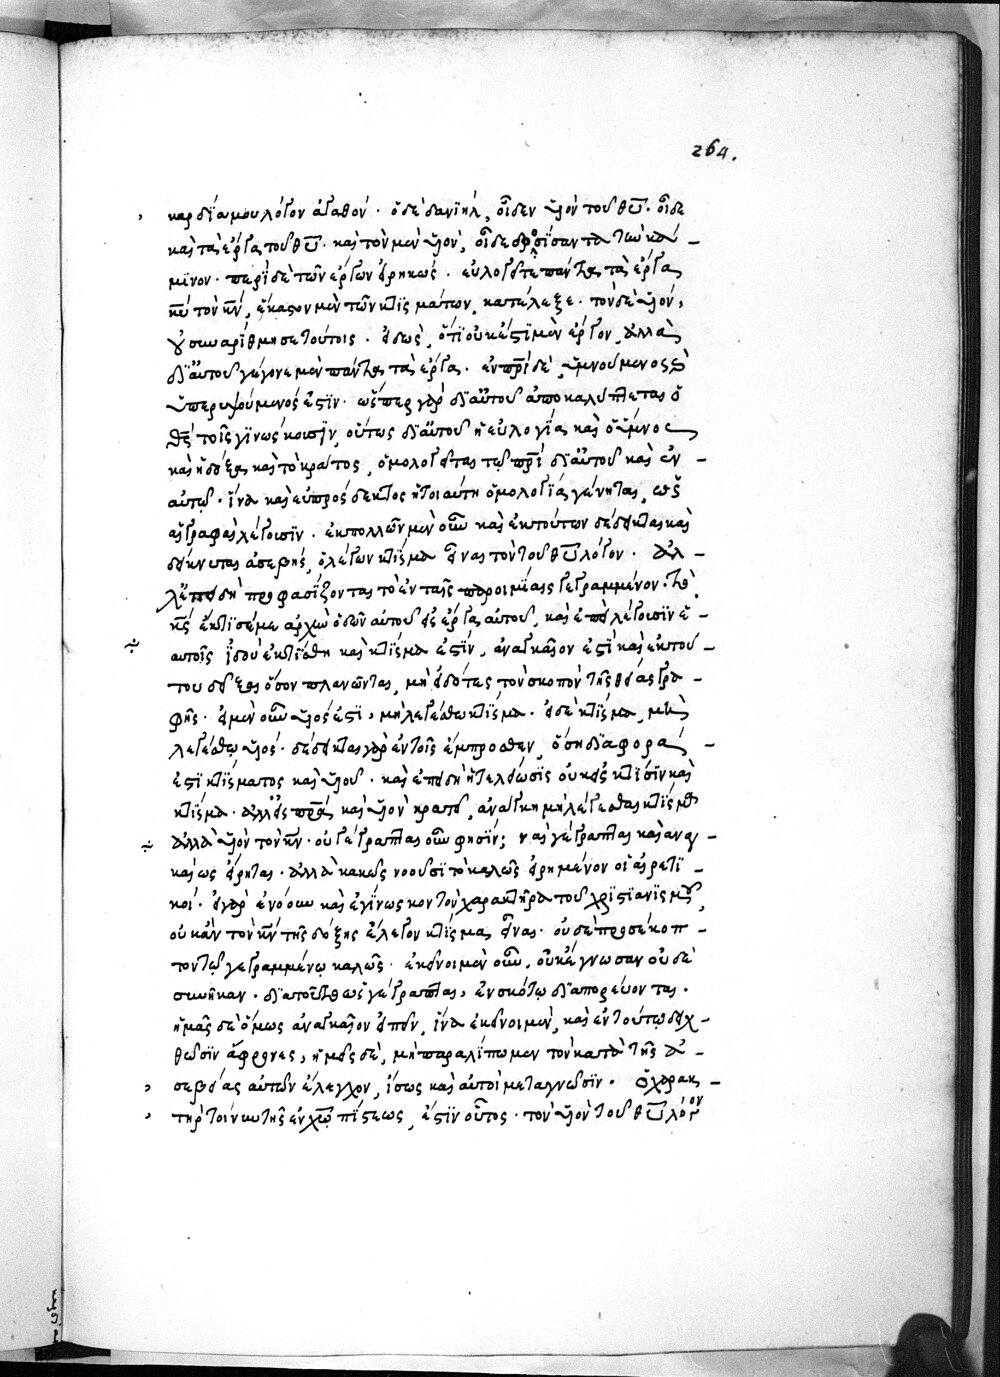 264.
καρδία μου λόγον ἀγαθόν · ὁ δὲ δανιὴλ, οἶδεν υἱὸν τοῦ θῡ · οἶδε
καὶ τὰ ἔργα τοῦ θῡ · καὶ τὸν μὲν υἱὸν, οἶδε δροσίσαντα τὴν κά-
μινον · περὶ δὲ τῶν ἔργων εἰρηκώς · εὐλογεῖτε πάντα τὰ ἔργα
κῡ τὸν κν̄, ἕκαστον μὲν τῶν κτισμάτων κατέλεξε · τὸν δὲ υἱὸν,
οὐ συνηρίθμησε τούτοις · εἰδὼς, ὅτι οὐκ ἔστι μὲν ἔργον, ἀλλὰ
δι' αὐτοῦ γέγονε μὲν πάντα τὰ ἔργα · ἐν πρὶ δὲ, ὑμνούμενος καὶ
ὑπερυψούμενός ἐστιν · ὥσπερ γὰρ δι' αὐτοῦ ἀποκαλύπτεται ὁ
θς̄ τοῖς γινώσκουσιν, οὕτως δι' αὐτοῦ ἡ εὐλογία καὶ ὁ ὕμνος
καὶ ἡ δόξα καὶ τὸ κράτος, ὁμολογεῖται τῷ πρὶ δι' αὐτοῦ καὶ ἐν
αὐτῷ · ἵνα καὶ εὐπρόσδεκτος ἡ τοιαύτη ὁμολογία γένηται, ὡς
αἱ γραφαὶ λέγουσιν · ἐκ πολλῶν μὲν οὖν καὶ ἐκ τούτων δέδεικται καὶ
δείκνυται ἀσεβὴς, ὁ λέγων κτίσμα εἶναι τὸν τοῦ θῡ λόγον · ἀλ-
λ' ἐπειδὴ προφασίζονται τὸ ἐν ταῖς παροιμίαις γεγραμμένον · τὸ
κς̄ ἔκτισέ με ἀρχὴν ὁδῶν αὐτοῦ εἰς ἔργα αὐτοῦ, καὶ ἐπιλέγουσιν ἑ-
αυτοῖς ἰδοὺ ἐκτίσθη καὶ κτίσμα ἐστίν, ἀναγκαῖον ἐστὶ καὶ ἐκ τού-
του δεῖξαι ὅσον πλανῶνται, μὴ εἰδότες τὸν σκοπὸν τῆς θείας γρα-
φῆς · εἰ μὲν οὖν υἱός ἐστι, μὴ λεγέσθω κτίσμα · εἰ δὲ κτίσμα, μὴ
λεγέσθω υἱός · δέδεικται γὰρ ἐν τοῖς ἔμπροσθεν, ὅση διαφορὰ
ἐστὶ κτίσματος καὶ υἱοῦ · καὶ ἐπειδὴ ἡ τελείωσις οὐκ εἰς κτίσιν καὶ
κτίσμα · ἀλλ' εἰς πρᾱ καὶ υἱὸν κρατεῖ, ἀνάγκη μὴ λέγεσθαι κτίσμα
ἀλλὰ υἱὸν τὸν κν̄ · οὐ γέγραπται οὖν φησίν; ναὶ γέγραπται καὶ ἀναγ-
καίως εἴρηται · ἀλλὰ κακῶς νοοῦσι τὸ καλῶς εἰρημένον οἱ αἱρετι-
κοί · εἰ γὰρ ἐνόουν καὶ ἐγίνωσκον τὸν χαρακτῆρα τοῦ χριστιανισμοῦ,
οὐκ ἂν τὸν κν̄ τῆς δόξης ἔλεγον κτίσμα εἶναι · οὐδὲ προσέκοπ-
τον τῷ γεγραμμένῳ καλῶς · ἐκεῖνοι μὲν οὖν, οὐκ ἔγνωσαν οὐδὲ
συνῆκαν · διὰ τοῦτο ὡς γέγραπται, ἐν σκότῳ διαπορεύονται ·
ἡμᾶς δὲ ὅμως ἀναγκαῖον εἰπεῖν, ἵνα ἐκεῖνοι μὲν, καὶ ἐν τούτῳ δειχ-
θῶσιν ἄφρονες, ἡμεῖς δὲ, μὴ παραλίπωμεν τὸν κατὰ τῆς ἀ-
σεβείας αὐτῶν ἔλεγχον, ἴσως καὶ αὐτοὶ μεταγνῶσιν · ὁ χαρακ-
τὴρ τοίνυν τῆς ἐν χῷ πίστεως, ἐστὶν οὗτος · τὸν υἱὸν τοῦ θῡ λόγον